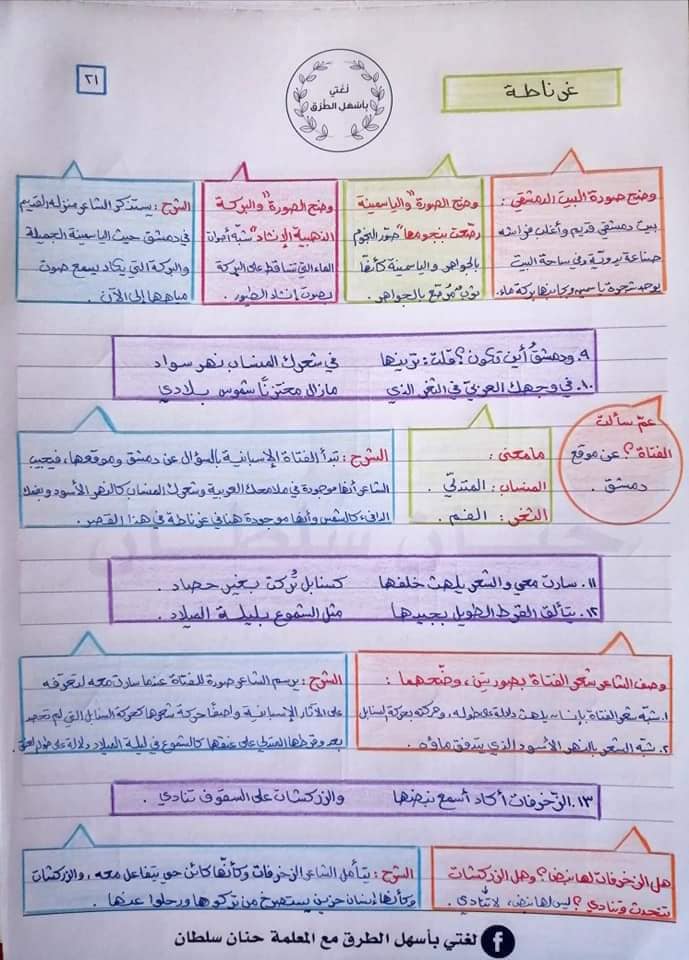 ٢١
لغتي
بأسهل الطرق
غرناطة
وضح صورة البيت الدمشقي :
بيت دمشقي قديم وأغلب فراشه
صناعة يدوية وفي ساحة البيت
يوجد شجرة ياسمين وبجانبها بركة ماء.
وضح الصورة "والياسمينة
رصّعت بنجومها" صوّر النجوم
بالجواهر والياسمينة كأنها
ثوبٌ مُرصّع بالجواهر .
وضح الصورة "والبركة
الذهبية الإنشاد" شبّه أصوات
الماء التي تتساقط على البركة
بصوت إنشاد الطيور .
الشرح : يستذكر الشاعر منزله القديم
في دمشق حيث الياسمينة الجميلة
والبركة التي يكاد يسمع صوت
مياهها إلى الآن .
٩. ودمشقُ أين تكون؟ قلتُ : ترينها في شعرك المنساب نهر سواد
١٠. في وجهك العربيّ في الثغر الذي مازال مختزنًا شموس بلادي
عمّ سألت
الفتاة؟ عن موقع
دمشق .
ما معنى :
المنساب : المتدلّي .
الثغر : الفم .
الشرح : تبدأ الفتاة الإسبانية بالسؤال عن دمشق وموقعها، فيجيب
الشاعر أنها موجودة في ملامحك العربية وشعرك المنساب كالنهر الأسود وبفمك
الدافئ كالشمس وأنها موجودة هنا في غرناطة في هذا القصر .
١١. سارت معي والشعر يلهث خلفها كسنابل تُركت بغير حصاد .
١٢. يتألق القرط الطويل بجيدها مثل الشموع بليلة الميلاد .
وصف الشاعر شعر الفتاة بصورتين، وضّحهما :
١. شبّه شعر الفتاة بإنسان يلهث دلالة على طوله، وحركته بحركة السنابل
٢. شبّه الشعر بالنهر الأسود الذي يتدفق ماؤه .
الشرح : يرسم الشاعر صورة للفتاة عندما سارت معه لتعرفه
على الآثار الإسبانية واصفًا حركة شعرها كحركة السنابل التي لم تحصد
بعد وقرطها المتدلي على عنقها كالشموع في ليلة الميلاد دلالة على طول العنق.
١٣. الزخرفات أكاد أسمع نبضها والزركشات على السقوف تنادي .
هل الزخرفات لها نبض؟ وهل الزركشات
تتحدث وتنادي؟ ليس لها نبض، لا تُنادي .
الشرح : يتأمل الشاعر الزخرفات وكأنّها كائن حي يتفاعل معه، والزركشات
وكأنها إنسان حزين يستصرخ من تركوها ورحلوا عنها .
حنان سلطان
لغتي بأسهل الطرق مع المعلمة حنان سلطان